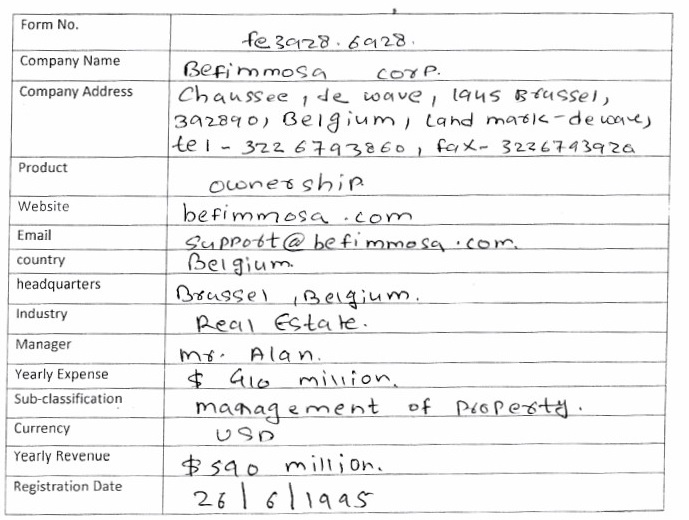 Form No.
fe3928.6928.
Company Name
Befimmosa corp.
Company Address
Chaussee, de wave, 1945 Brussel,
392890, Belgium, Land mark-de wave,
tel - 322 6793860, fax- 3226793920
Product
ownership
Website
befimmosa.com
Email
support@befimmosa.com.
country
Belgium.
headquarters
Brussel, Belgium.
Industry
Real Estate.
Manager
mr. Alan.
Yearly Expense
$ 910 million.
Sub-classification
management of Property.
Currency
USD
Yearly Revenue
$590 million.
Registration Date
26/6/1995